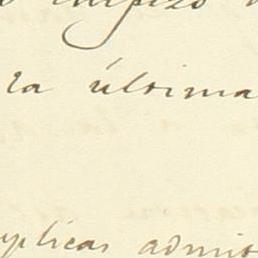 empezó
ra última
plicas admit